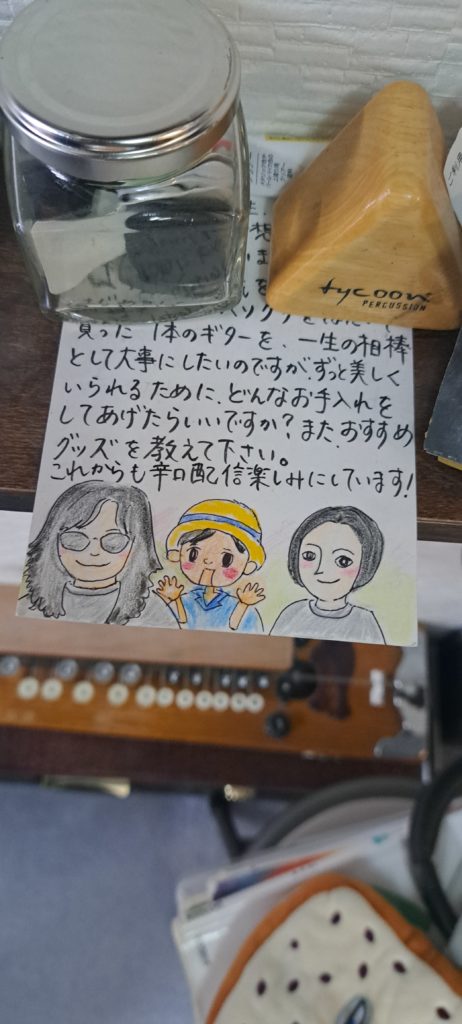 tycoon
PERCUSSION
想
買った1本のギターを、一生の相棒
として大事にしたいのですが、ずっと美しく
いられるために、どんなお手入れを
してあげたらいいですか?また、おすすめ
グッズを教えて下さい。
これからも辛口配信楽しみにしています!